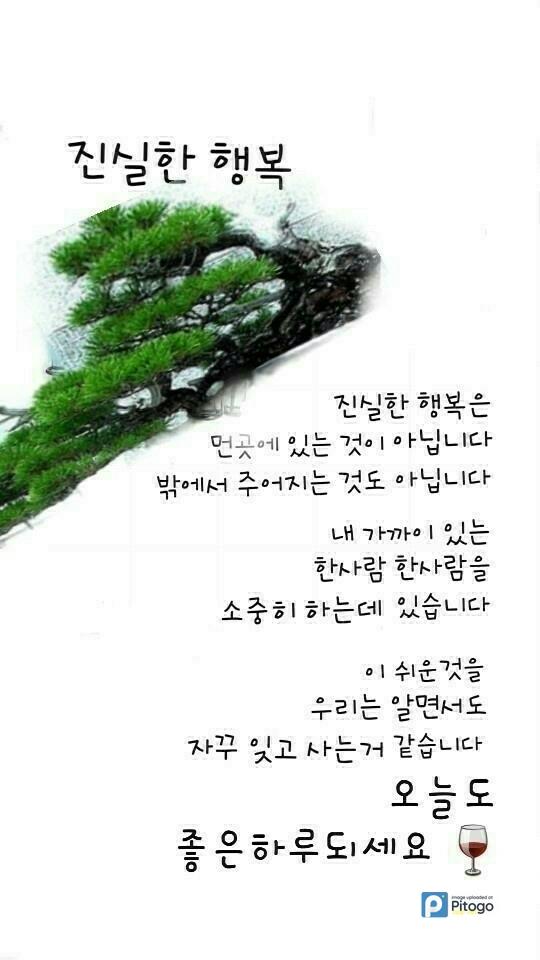 진실한 행복
진실한 행복은
먼곳에 있는 것이 아닙니다
밖에서 주어지는 것도 아닙니다
내 가까이 있는
한사람 한사람을
소중히 하는데 있습니다
이 쉬운것을
우리는 알면서도
자꾸 잊고 사는거 같습니다
오늘도
좋은하루되세요
image uploaded at
Pitogo